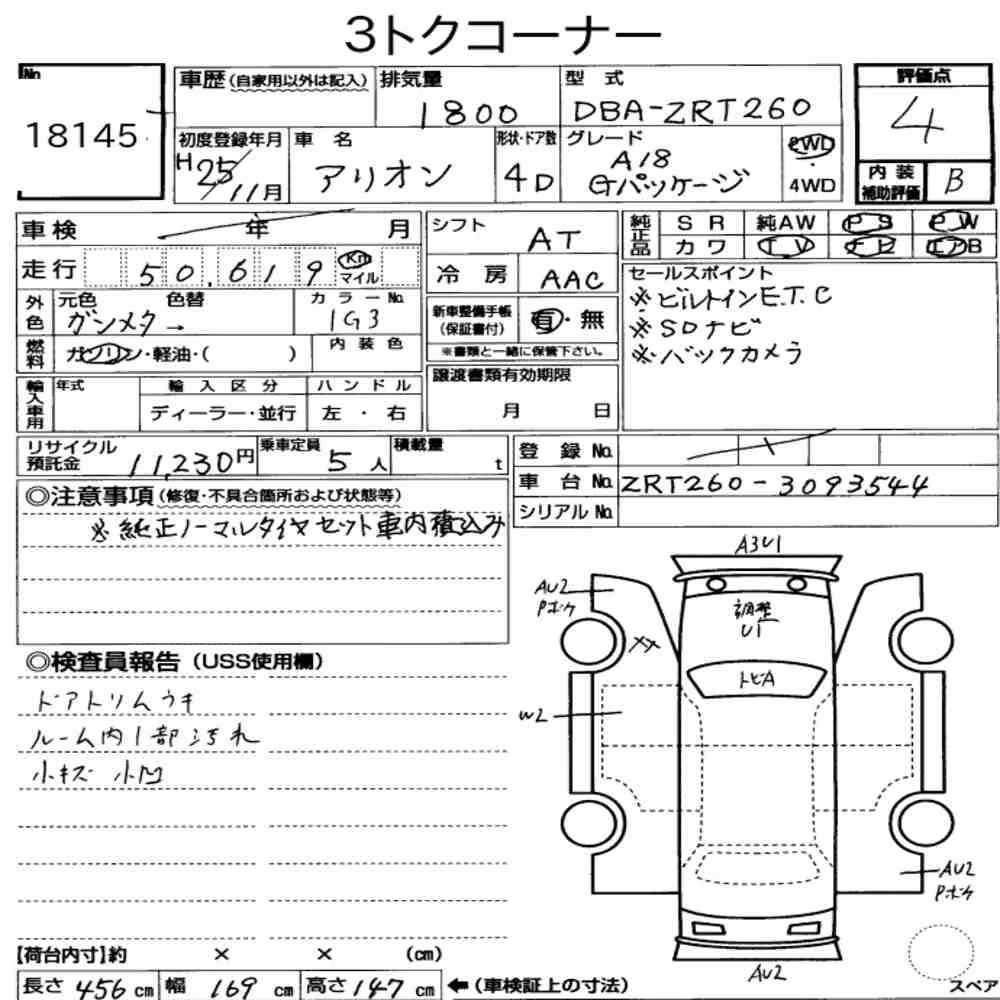 3トクコーナー
No.
18145
車歴 (自家用以外は記入)
排気量
1800
型 式
DBA-ZRT260
評価点
4
初度登録年月
H25/11月
車 名
アリオン
形状・ドア数
4D
グレード
A18
Gパッケージ
2WD
・
4WD
内 装
補助評価
B
車検 年 月
走行 50,619 Km
マイル
シフト
AT
冷 房
AAC
純正品
S R 純AW P S P W
カ ワ T V ナ ビ エアB
外色
元色 色替
ガンメタ →
カラーNo.
1G3
新車整備手帳
(保証書付)
有・無
※書類と一緒に保管下さい。
セールスポイント
※ビルトインE.T.C
※SDナビ
※バックカメラ
燃料
ガソリン・軽油・( )
内 装 色
輸入車用
年式
輸 入 区 分
ディーラー・並行
ハ ン ド ル
左 ・ 右
譲渡書類有効期限
月 日
リサイクル
預託金
11,230円
乗車定員
5 人
積載量
t
登 録 No.
車 台 No. ZRT260-3093544
シリアル No.
◎注意事項(修復・不具合箇所および状態等)
※純正ノーマルタイヤセット車内積込み
◎検査員報告(USS使用欄)
ドアトリムウキ
ルーム内1部汚れ
小キズ 小凹
A3U1
AU2
Pボケ
調整
U1
トビA
W2
AU2
Pボケ
AU2
スペア
【荷台内寸】約 × × (cm)
長さ 456 cm 幅 169 cm 高さ 147 cm ←(車検証上の寸法)